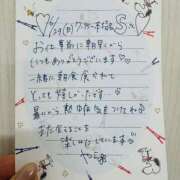 お仕事前に朝早くから
いつもありがとうございます
一緒に朝食 食べれて
とっても嬉しかったです
暑いから熱中症気をつけてね
また会えることを
楽しみにしています